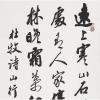 遠上寒山石
處有人家停
林晚霜葉
杜牧詩山行